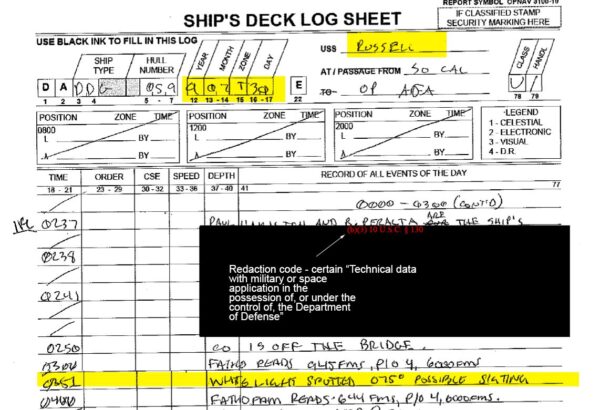 REPORT SYMBOL OPNAV 3100-19
IF CLASSIFIED STAMP
SECURITY MARKING HERE
SHIP'S DECK LOG SHEET
USE BLACK INK TO FILL IN THIS LOG
USS RUSSELL
SHIP TYPE
HULL NUMBER
YEAR MONTH ZONE DAY
CLASS HANDL
D A D D G 059 9 07 T 30 E
AT / PASSAGE FROM SO CAL
TO- OP AREA
U
1 2 3 4 5 - 7 12 13 - 14 15 16 - 17 22 78 79
POSITION ZONE TIME
0800
L BY
BY
POSITION ZONE TIME
1200
L BY
BY
POSITION ZONE TIME
2000
L BY
BY
-LEGEND
1 - CELESTIAL
2 - ELECTRONIC
3 - VISUAL
4 - D.R.
TIME ORDER CSE SPEED DEPTH RECORD OF ALL EVENTS OF THE DAY
18 - 21 23 - 29 30 - 32 33-36 37- 40 41 77
0000 - 0300 (CONT'D)
0237 AND R. PERALTA ARE THE SHIP'S
(b)(3) 10 U.S.C. § 130
0238
Redaction code - certain "Technical data
with military or space
application in the
possession of, or under the
control of, the Department
of Defense"
0241
0250 CO IS OFF THE BRIDGE.
0300 FATHO READS 945 FMS, P/O 4, 6000 FMS
0351 WHITE LIGHT SPOTTED 075° POSSIBLE SIGTING
0400 READS 644 FMS, P/O 4, 6000 FMS.